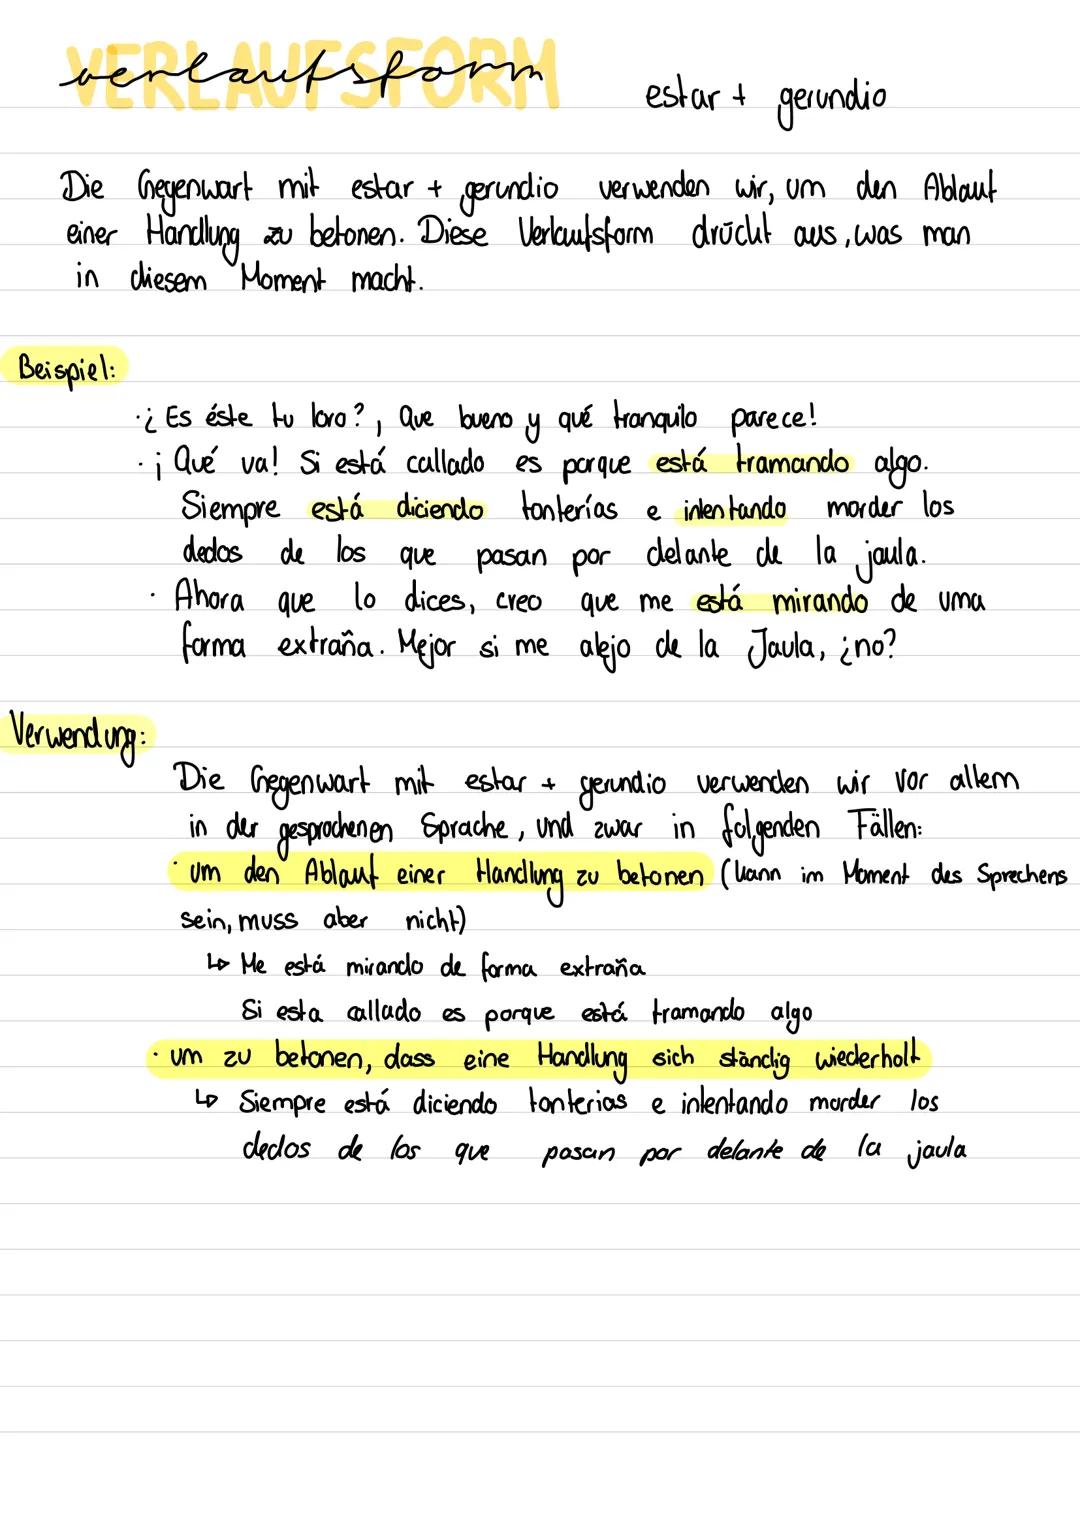 VERLAUFSFORM
verlaufsform
estar + gerundio
Die Gegenwart mit estar + gerundio verwenden wir, um den Ablauf
einer Handlung zu betonen. Diese Verlaufsform drückt aus, was man
in diesem Moment macht.
Beispiel:
·¿ Es éste tu loro?, Que bueno y qué tranquilo parece!
·¡ Qué va! Si está callado es porque está tramando algo.
Siempre está diciendo tonterías e intentando morder los
dedos de los que pasan por delante de la jaula.
· Ahora que lo dices, creo que me está mirando de uma
forma extraña. Mejor si me alejo de la Jaula, ¿no?
Verwendung:
Die Gegenwart mit estar + gerundio verwenden wir vor allem
in der gesprochenen Sprache, und zwar in folgenden Fällen:
· um den Ablauf einer Handlung zu betonen (kann im Moment des Sprechens
sein, muss aber nicht)
↳ Me está mirando de forma extraña
Si esta callado es porque está tramando algo
· um zu betonen, dass eine Handlung sich ständig wiederholt
↳ Siempre está diciendo tonterias e intentando morder los
dedos de los que pasan por delante de la jaula